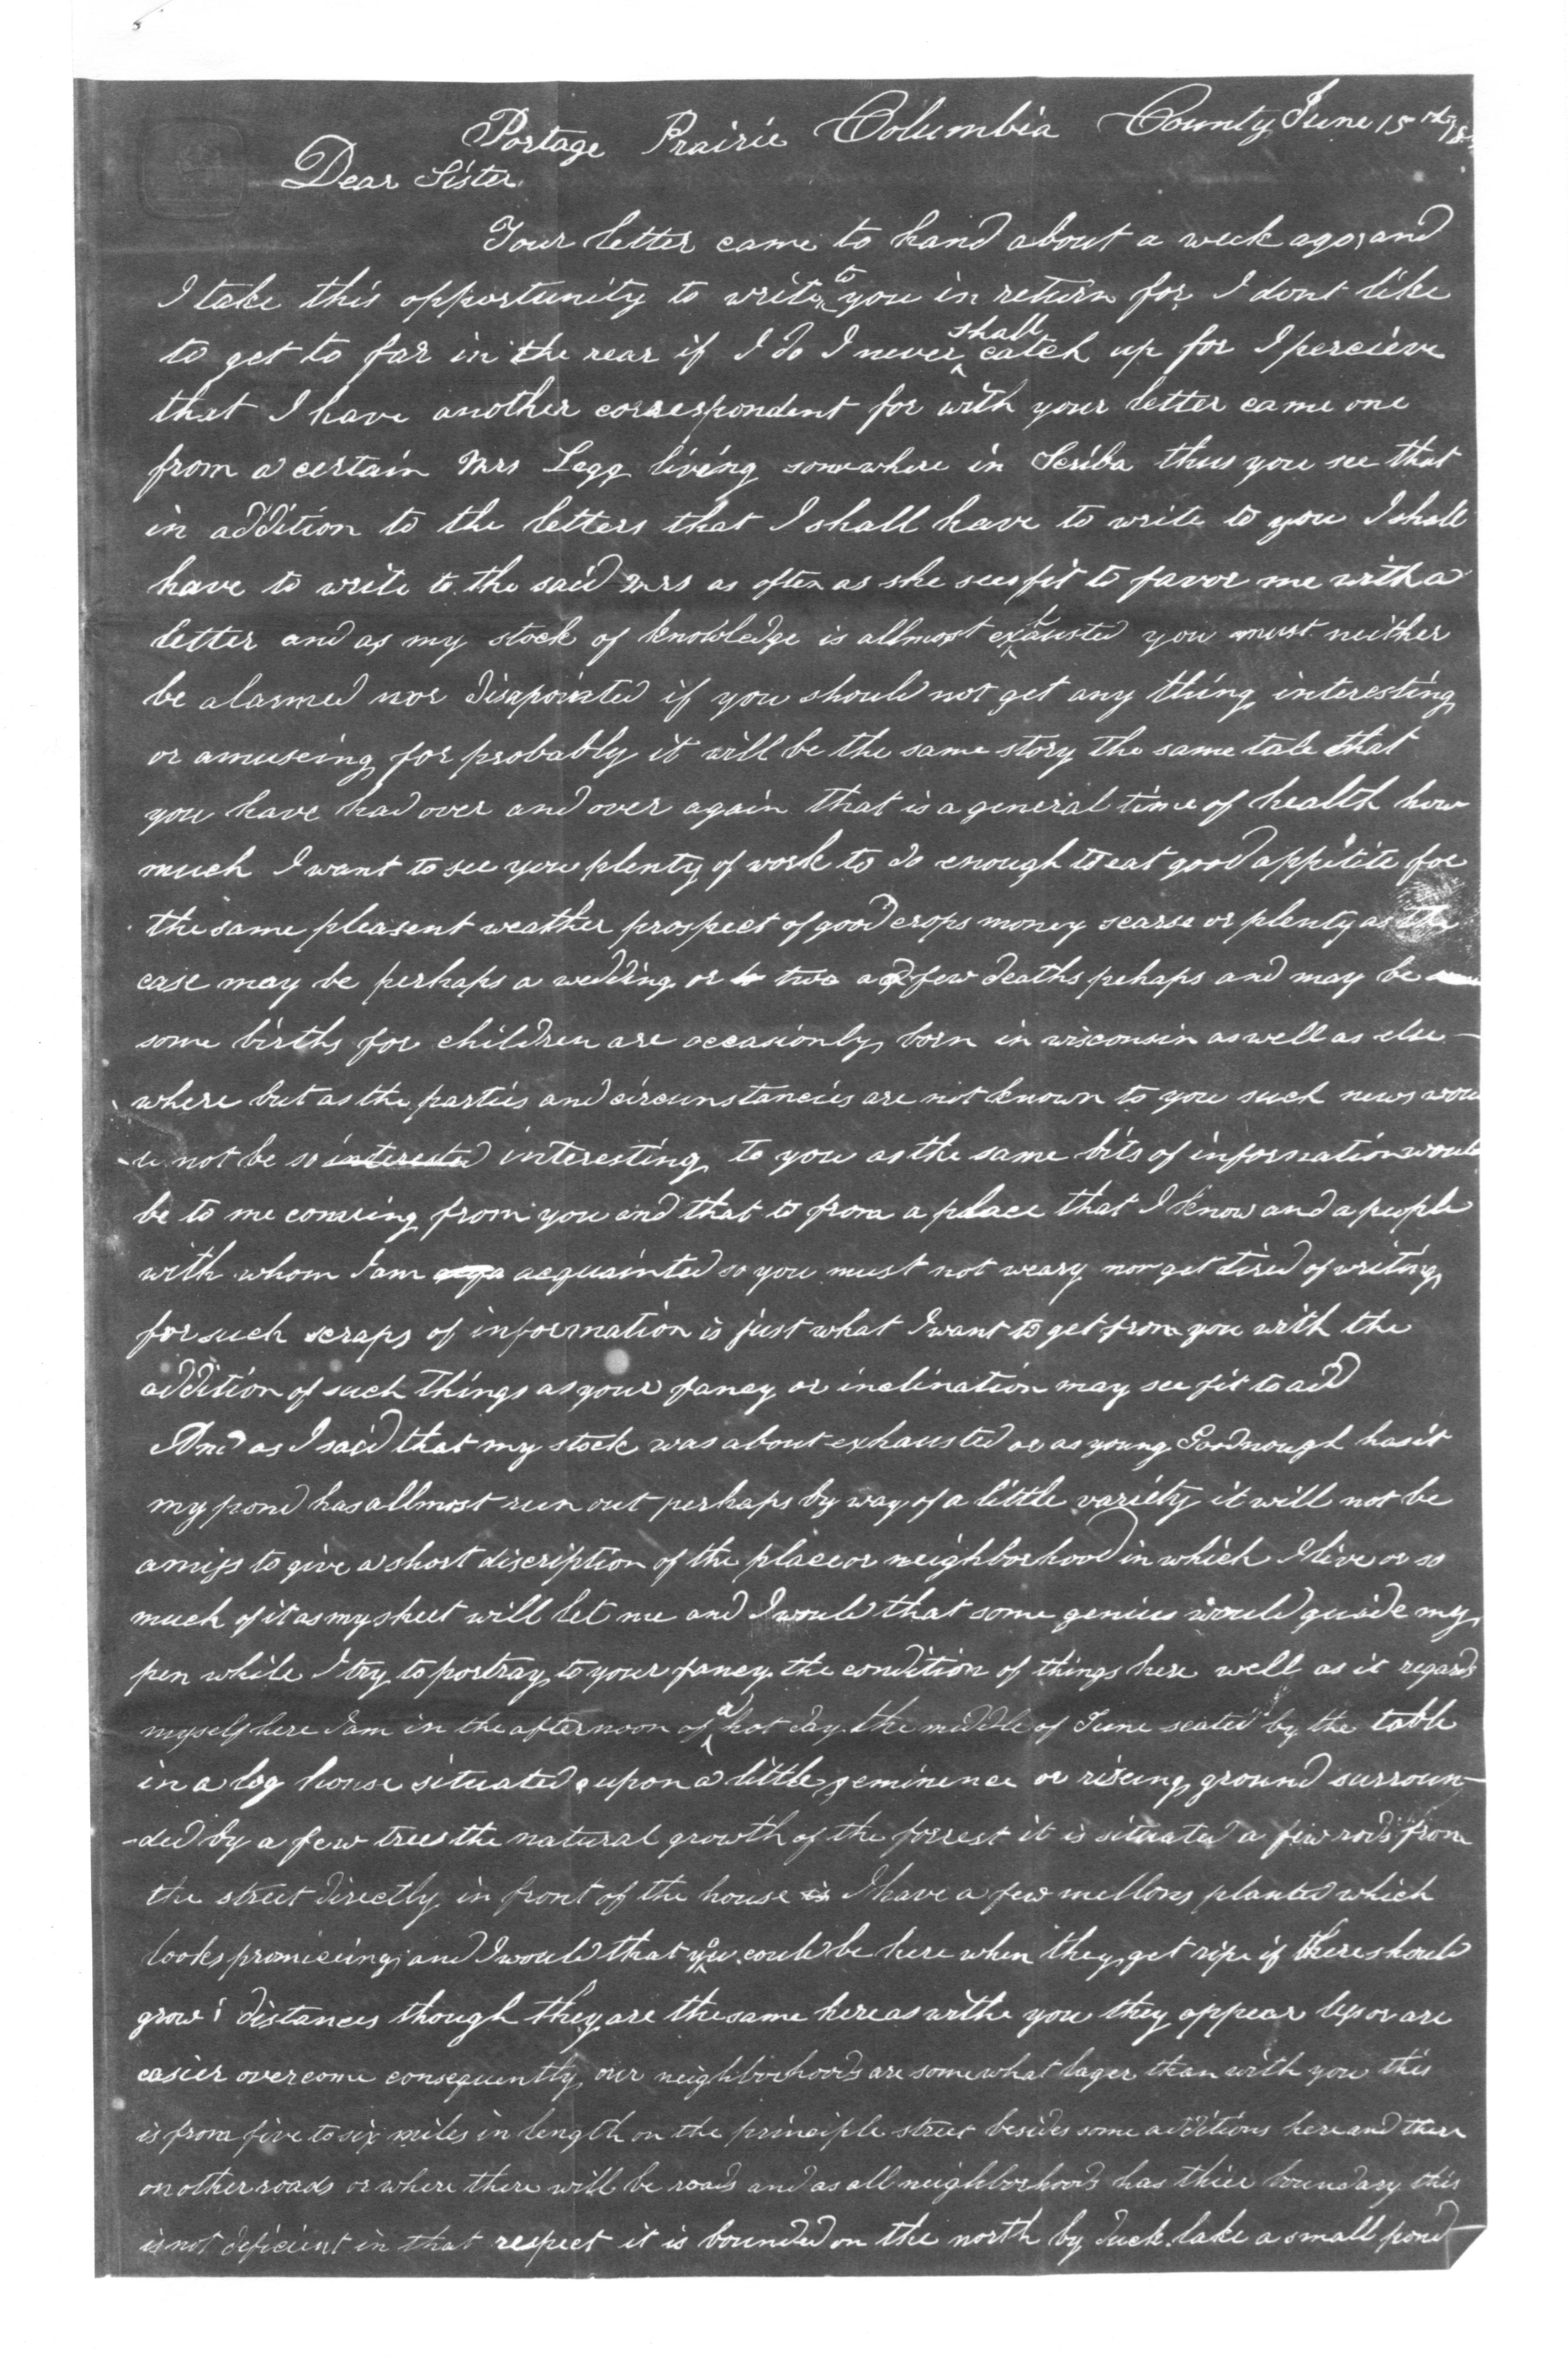 Portage Prairie Columbia County June 15
Dear Sister
Your letter came to hand about a week ago, and
I take this opportunity to write to you in return for I dont like
to get to far in the rear if I do I never shall catch up for I percieve
that I have another correspondent for with your letter came one
from a certain Mrs Legg living somewhere in Scriba thus you see that
in addition to the letters that I shall have to write to you I shall
have to write to the said Mrs as often as she sees fit to favor me with a
letter and as my stock of knowledge is allmost exhausted you must neither
be alarmed nor disapointed if you should not get any thing interesting
or amuseing for probably it will be the same story the same tale that
you have had over and over again that is a general time of health how
much I want to see you plenty of work to do enough to eat good appetite for
the same pleasent weather prospect of good crops money scarse or plenty as the
case may be perhaps a wedding or two a few deaths pehaps and may be
some births for children are occasionly born in wisconsin as well as else
where but as the parties and circunstancies are not known to you such news wou
ld not be so interested interesting to you as the same bits of information would
be to me comeing from you and that to from a place that I know and a people
with whom I am acquainted so you must not weary nor get tired of writing
for such scraps of information is just what I want to get from you with the
addition of such things as your fancy or inclination may see fit to add
And as I said that my stock was about exhausted or as young Goodnough has it
my pond has allmost run out perhaps by way of a little variety it will not be
amiss to give a short discription of the place or neighborhood in which I live or so
much of it as my sheet will let me and I would that some genius would guide my
pen while I try to portray to your fancy the condition of things here well as it regards
myself here I am in the afternoon of a hot day the middle of June seated by the table
in a log house situated upon a little eminence or riseing ground surroun-
-ded by a few trees the natural growth of the forrest it is situated a few rods from
the street directly in front of the house is I have a few mellons planted which
looks promiseing and I would that you could be here when they get ripe if there should
grow; distances though they are the same here as withe you they appear less or are
easier overcome consequently our neighborhoods are somewhat lager than with you this
is from five to six miles in length on the principle street besides some additions here and there
on other roads or where there will be roads and as all neighborhoods has thier boundary this
is not deficient in that respect it is bounded on the north by duck lake a small pond